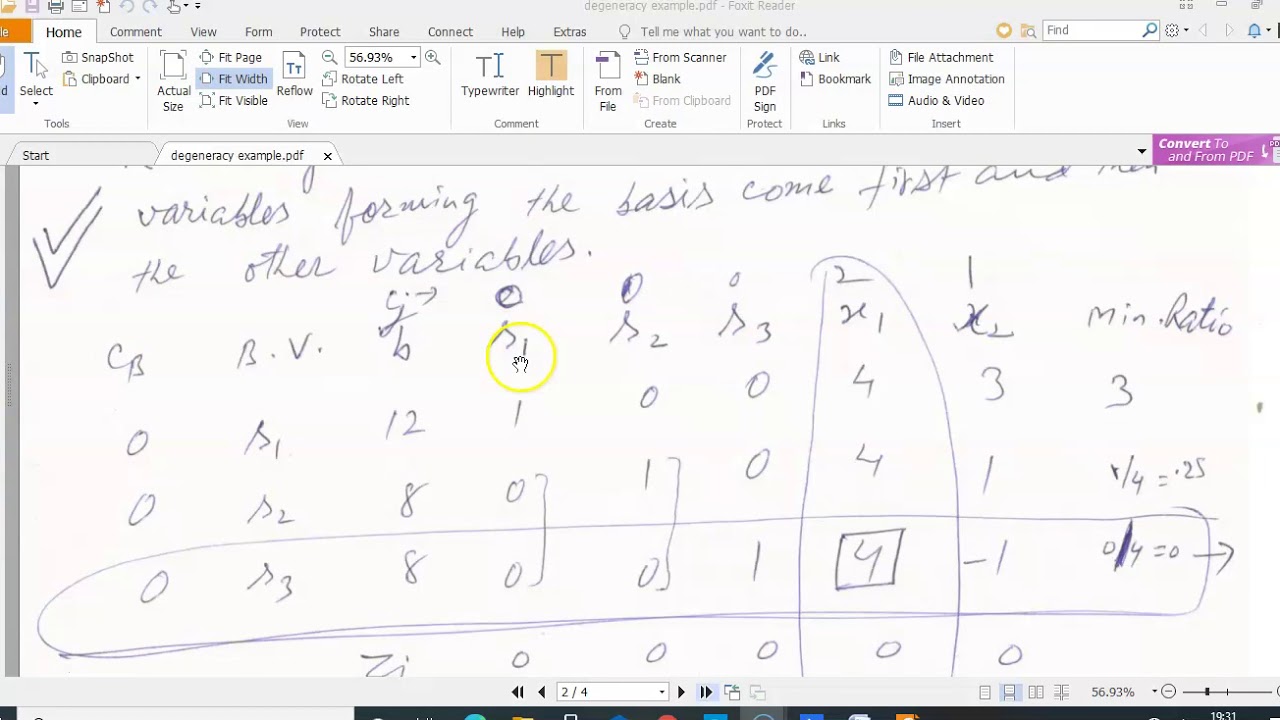 degeneracy example.pdf - Foxit Reader
Home Comment View Form Protect Share Connect Help Extras Tell me what you want to do.. Find
Select
SnapShot
Clipboard
Actual Size
Fit Page
Fit Width
Fit Visible
Reflow
56.93%
Rotate Left
Rotate Right
Typewriter
Highlight
From File
From Scanner
Blank
From Clipboard
PDF Sign
Link
Bookmark
File Attachment
Image Annotation
Audio & Video
Tools View Comment Create Protect Links Insert
Start degeneracy example.pdf
Convert To
and From PDF
variables forming the basis come first and
the other variables.
Cj → 0 0 0 2 1
CB B.V. b s1 s2 s3 x1 x2 Min.Ratio
0 s1 12 1 0 0 4 3 3
0 s2 8 0 1 0 4 1 1/4 = .25
0 s3 8 0 0 1 4 -1 0/4 = 0 →
Zj 0 0 0 0 0
2 / 4 56.93%
19:31